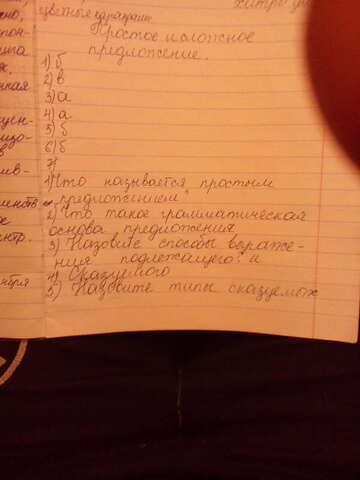 жно,
цветные карандаши.
Простое и сложное
предложение.
1) б
2) в
3) а
4) а
5) б
6) б
7)
1) Что называется простым
предложением?
2) Что такое грамматическая
основа предложения
3) Назовите способы выраже-
ния подлежащего? и
4) Сказуемого
5) Назовите типы сказуемых